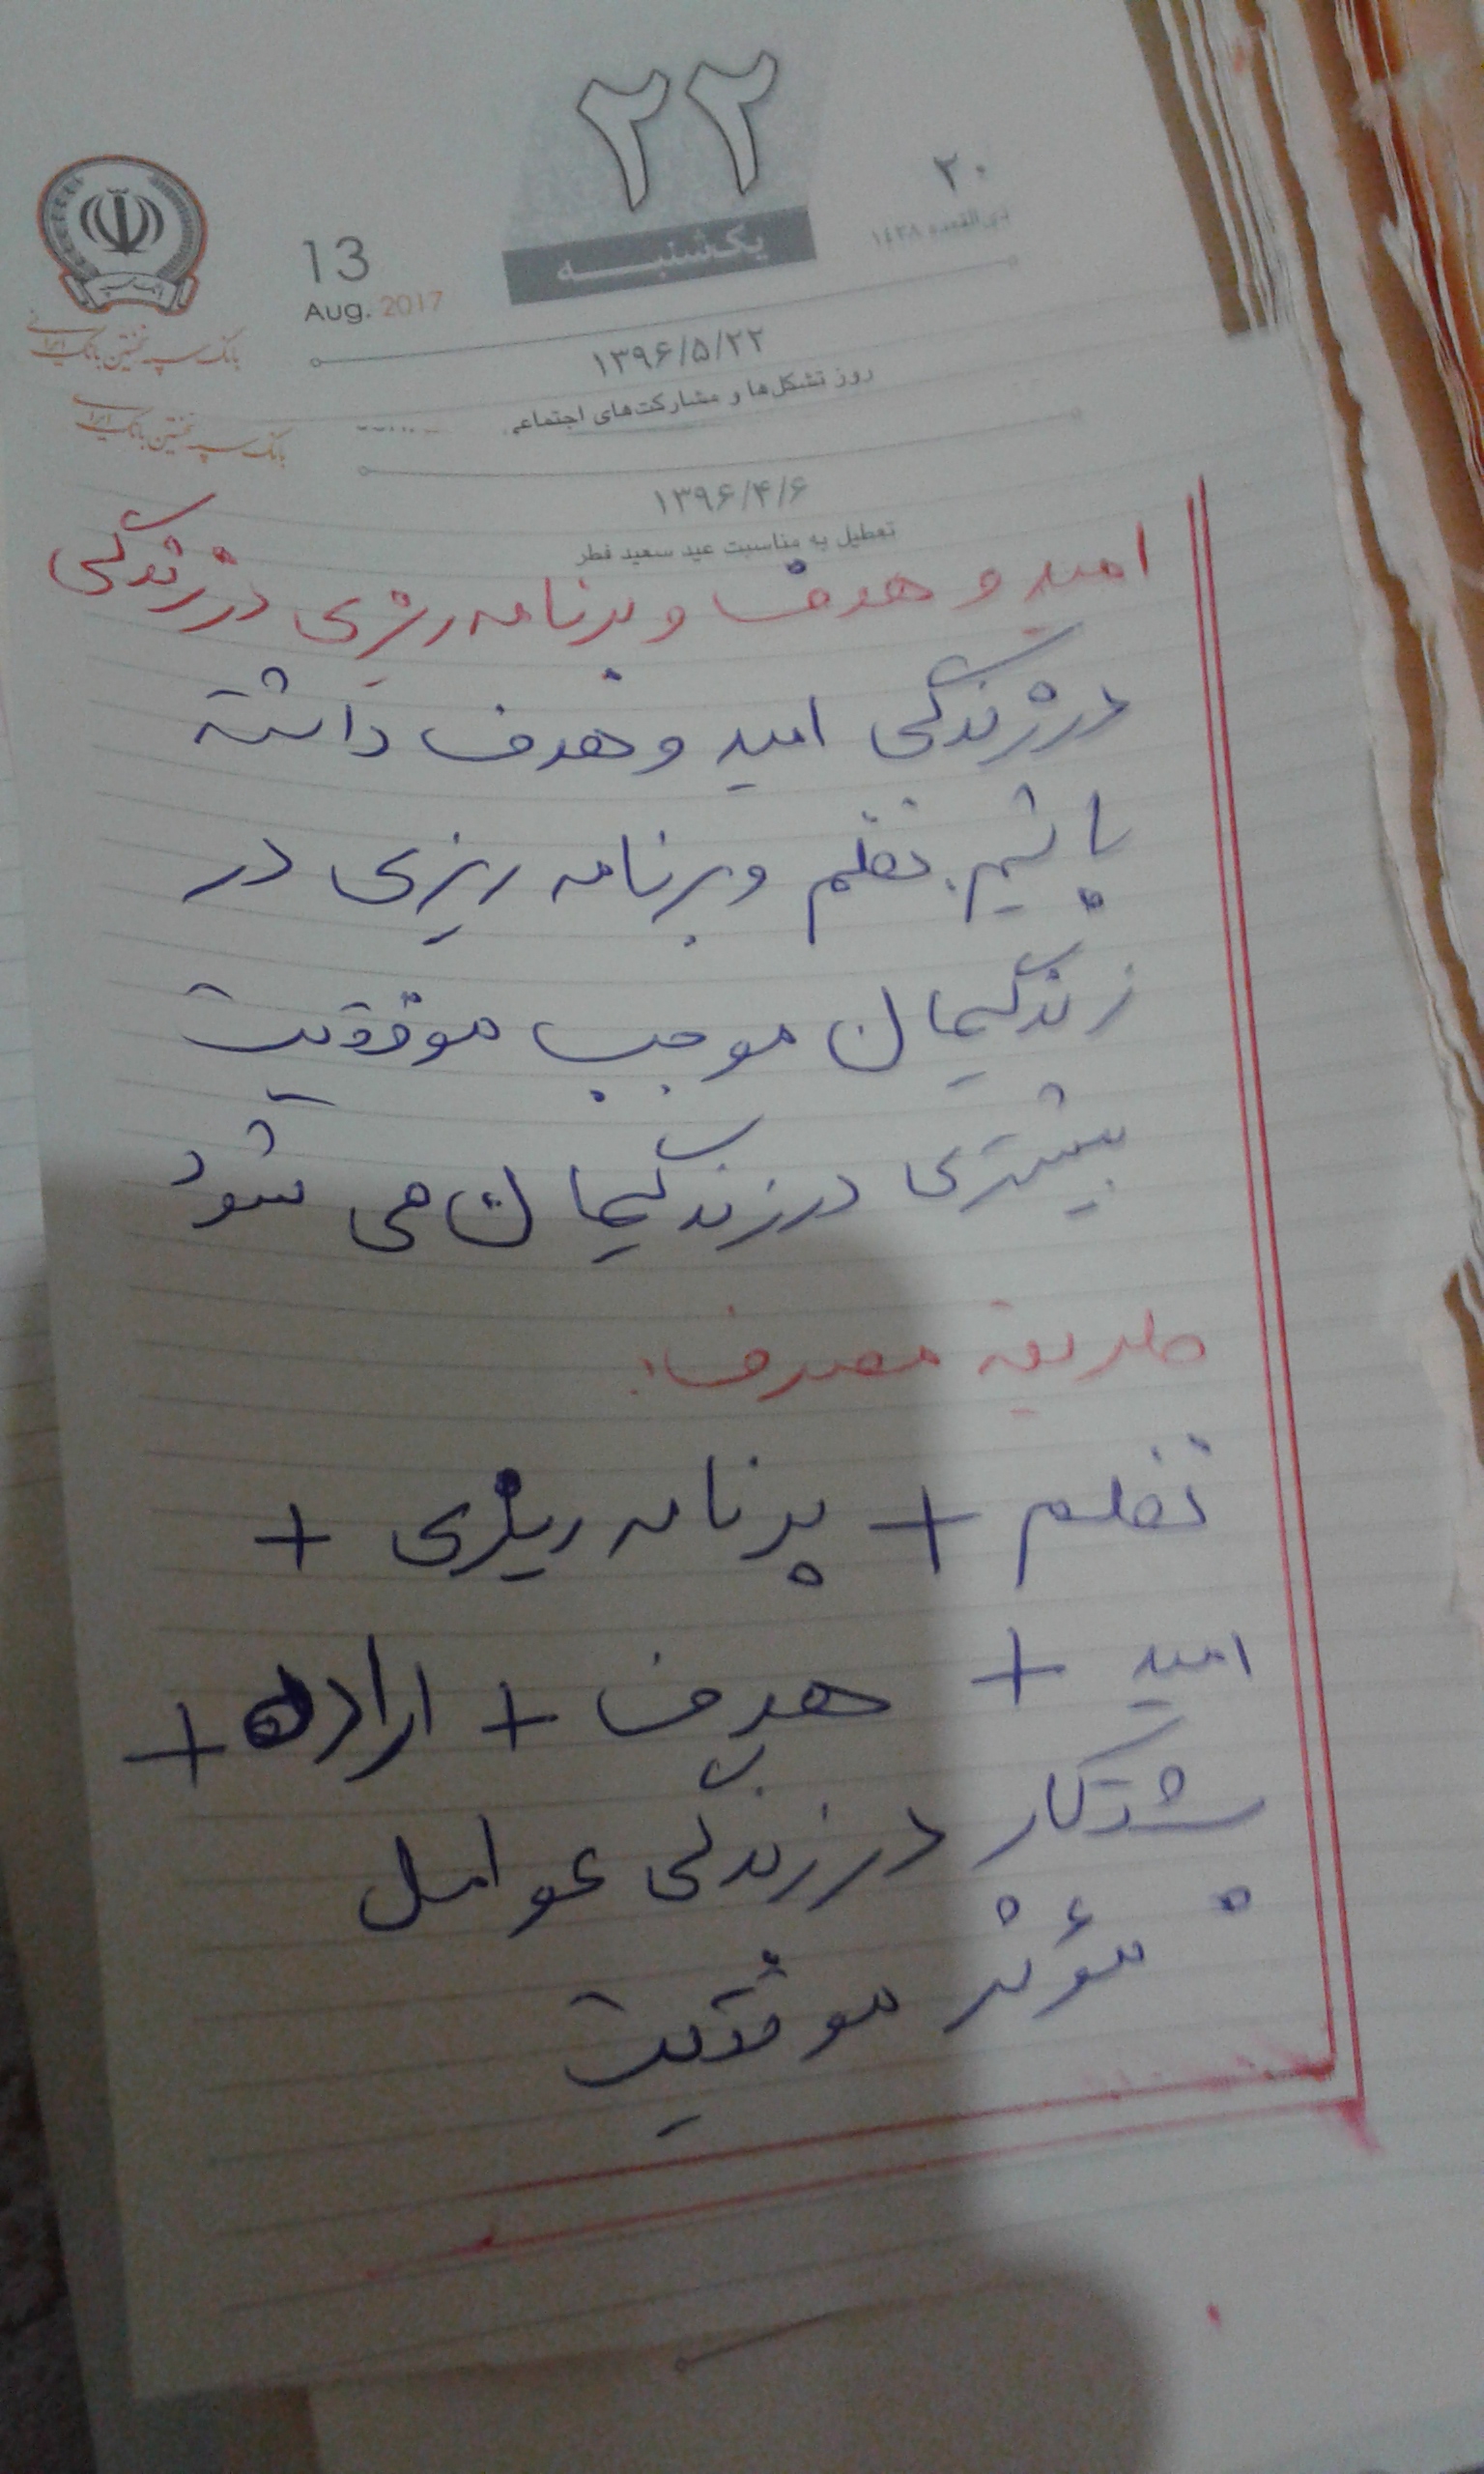 ۲۲
۲۰
ذی‌القعده ۱۴۳۸
یک‌شنبه
13
Aug. 2017
۱۳۹۶/۵/۲۲
روز تشکل‌ها و مشارکت‌های اجتماعی
بانک سپه نخستین بانک ایرانی
بانک سپه نخستین بانک ایرانی
۱۳۹۶/۴/۶
تعطیل به مناسبت عید سعید فطر
امید و هدف و برنامه ریزی در زندگی
در زندگی امید و هدف داشته
باشیم. نظم و برنامه ریزی در
زندگیمان موجب موفقیت
بیشتری در زندگیمان می شود
طریقه مصرف:
نظم + برنامه ریزی +
امید + هدف + اراده +
پشتکار در زندگی عوامل
مؤثر موفقیت